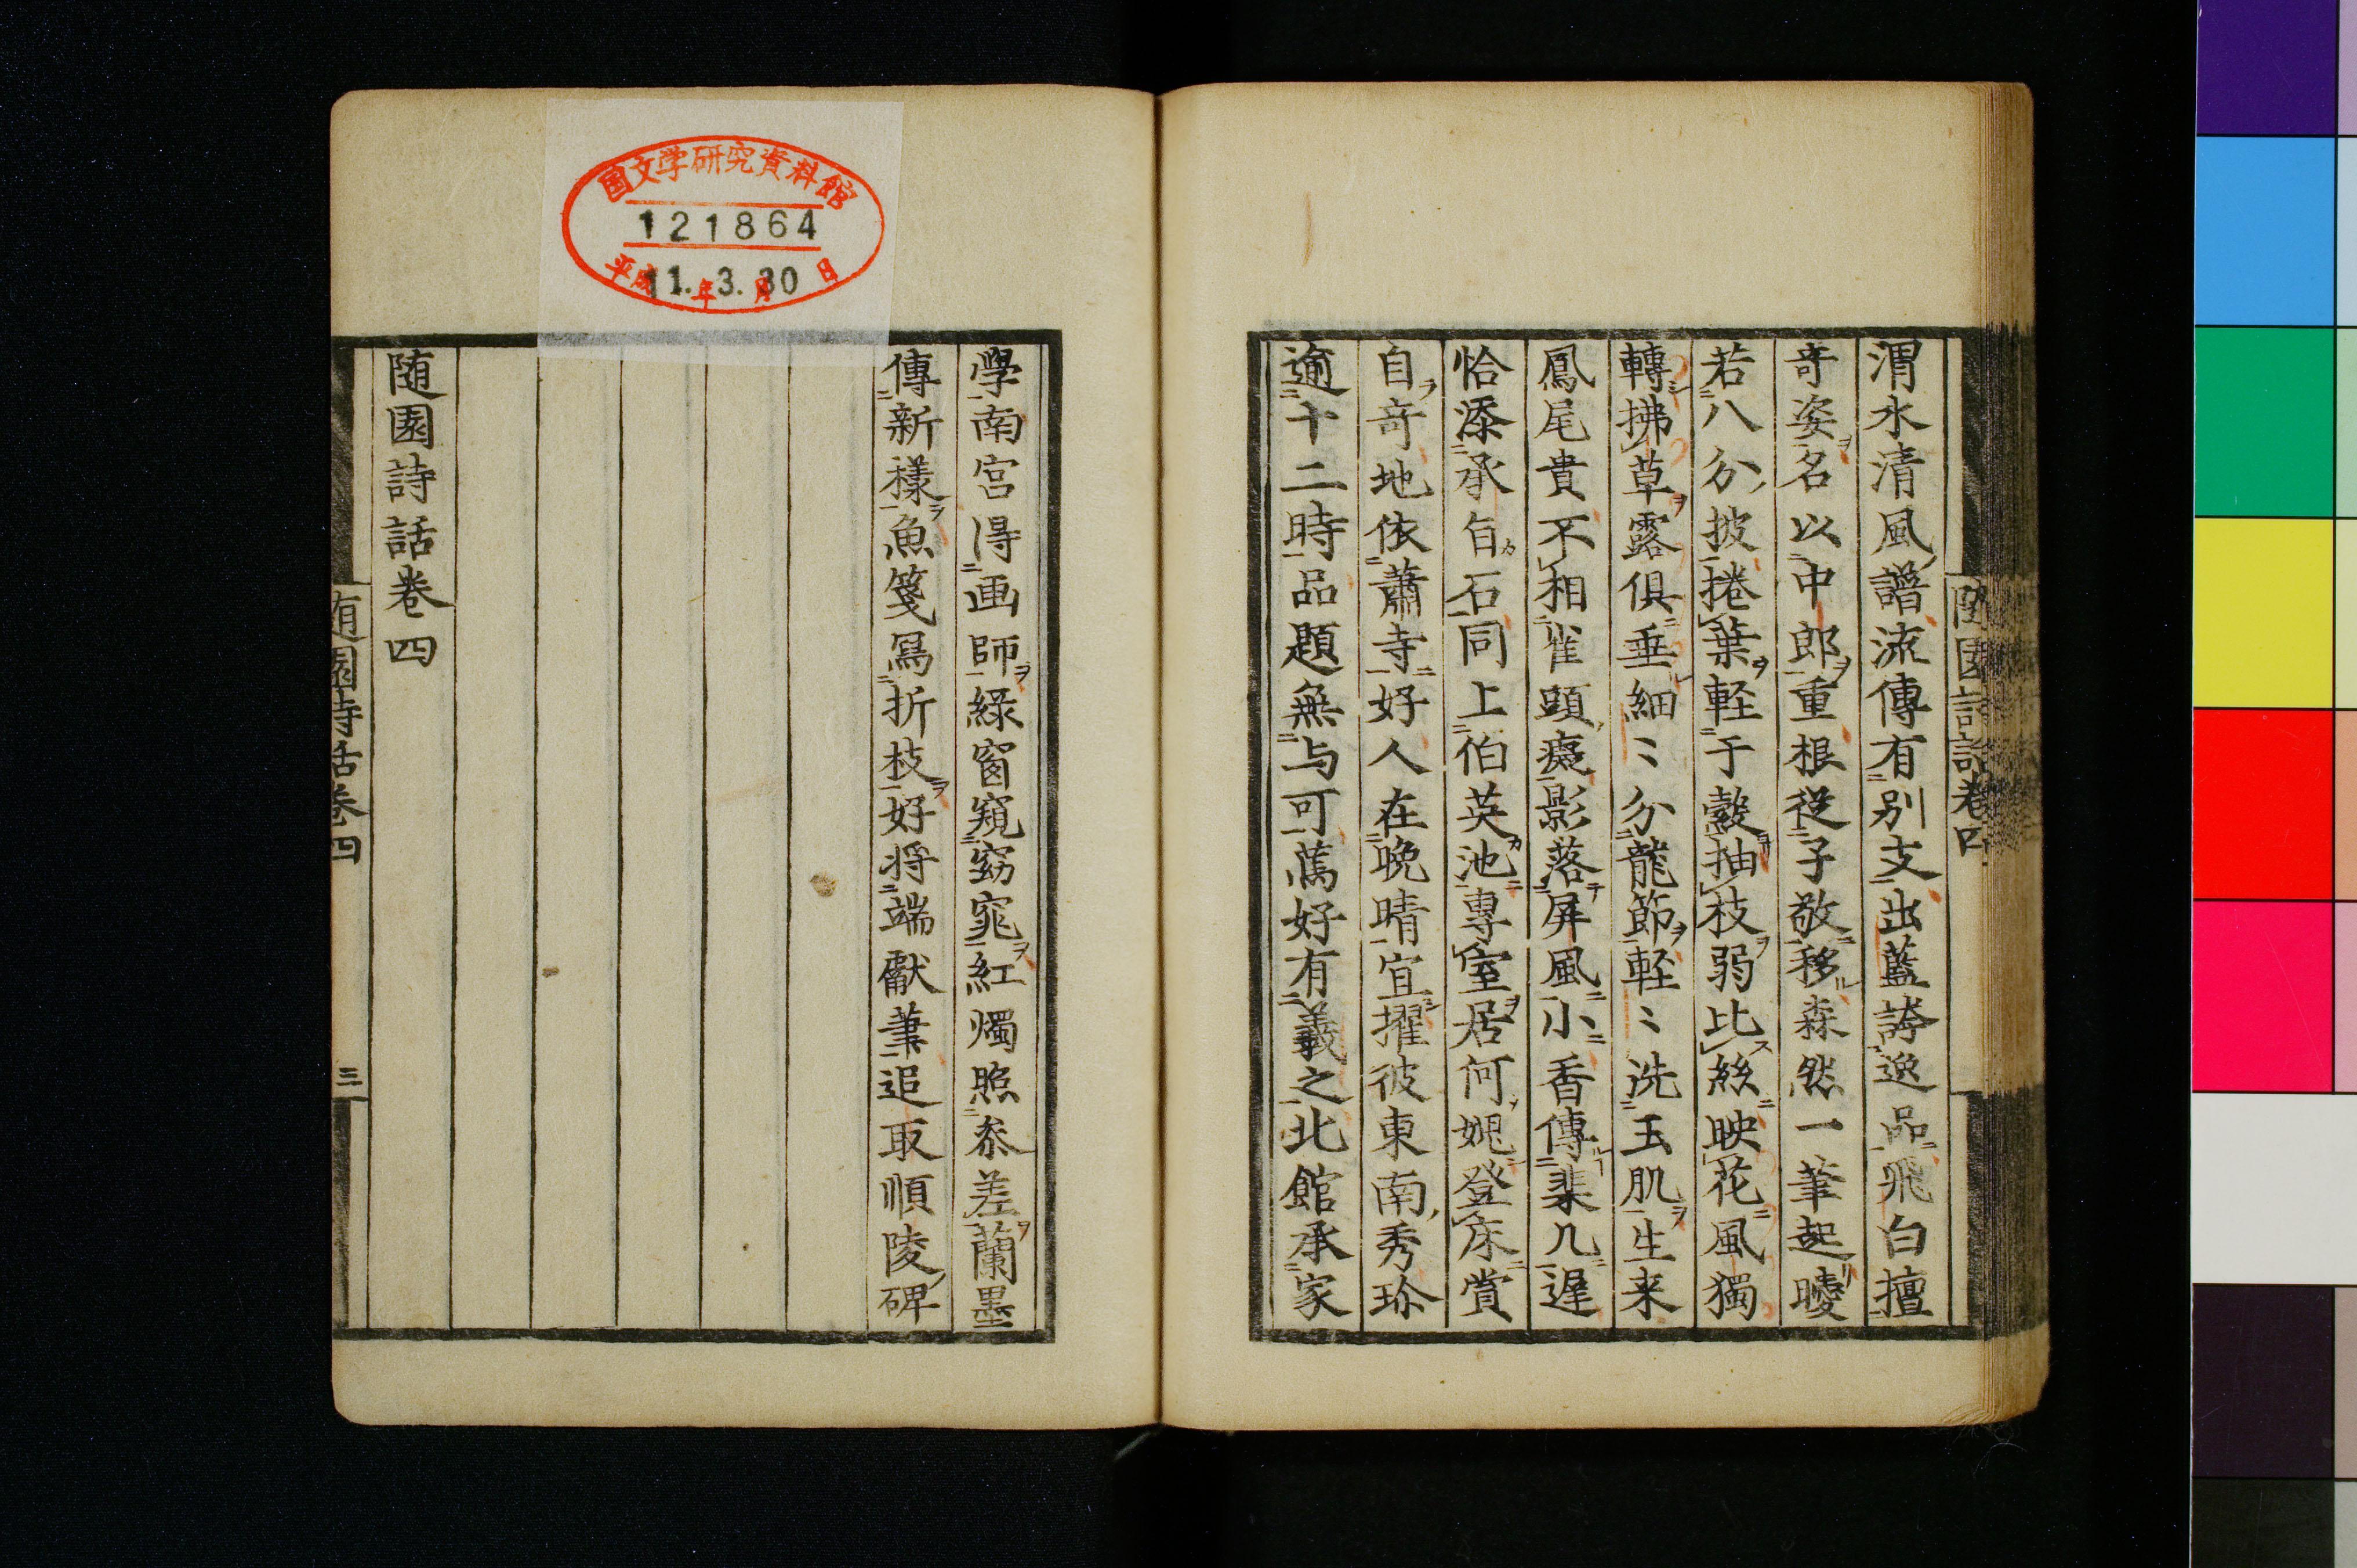 渭水清風譜流傳有別支出藍誇逸品飛白擅
奇姿名以中郎重根從子敬移森然一筆起
若八分披捲葉軽于縠抽枝弱比絲映花風獨
轉拂草露俱垂細〻分龍節軽〻洗玉肌生来
鳳尾貴不相雀頭癡影落屏風小香傳棐几遅
恰添承旨石同上伯英池專室居何媿登床賞
自奇地依蕭寺好人在晩晴宜擢彼東南秀珍
逾十二時品題無与可蔦好有義之北館承家
學南宮得画師緑窗窺窈窕紅燭照叅差蘭墨
傳新様魚箋寫折枝好将端獻筆追取順陵碑
随園詩話巻四
随園詩話巻四
三
國文学研究資料館
121864
平成11.年3.月30日